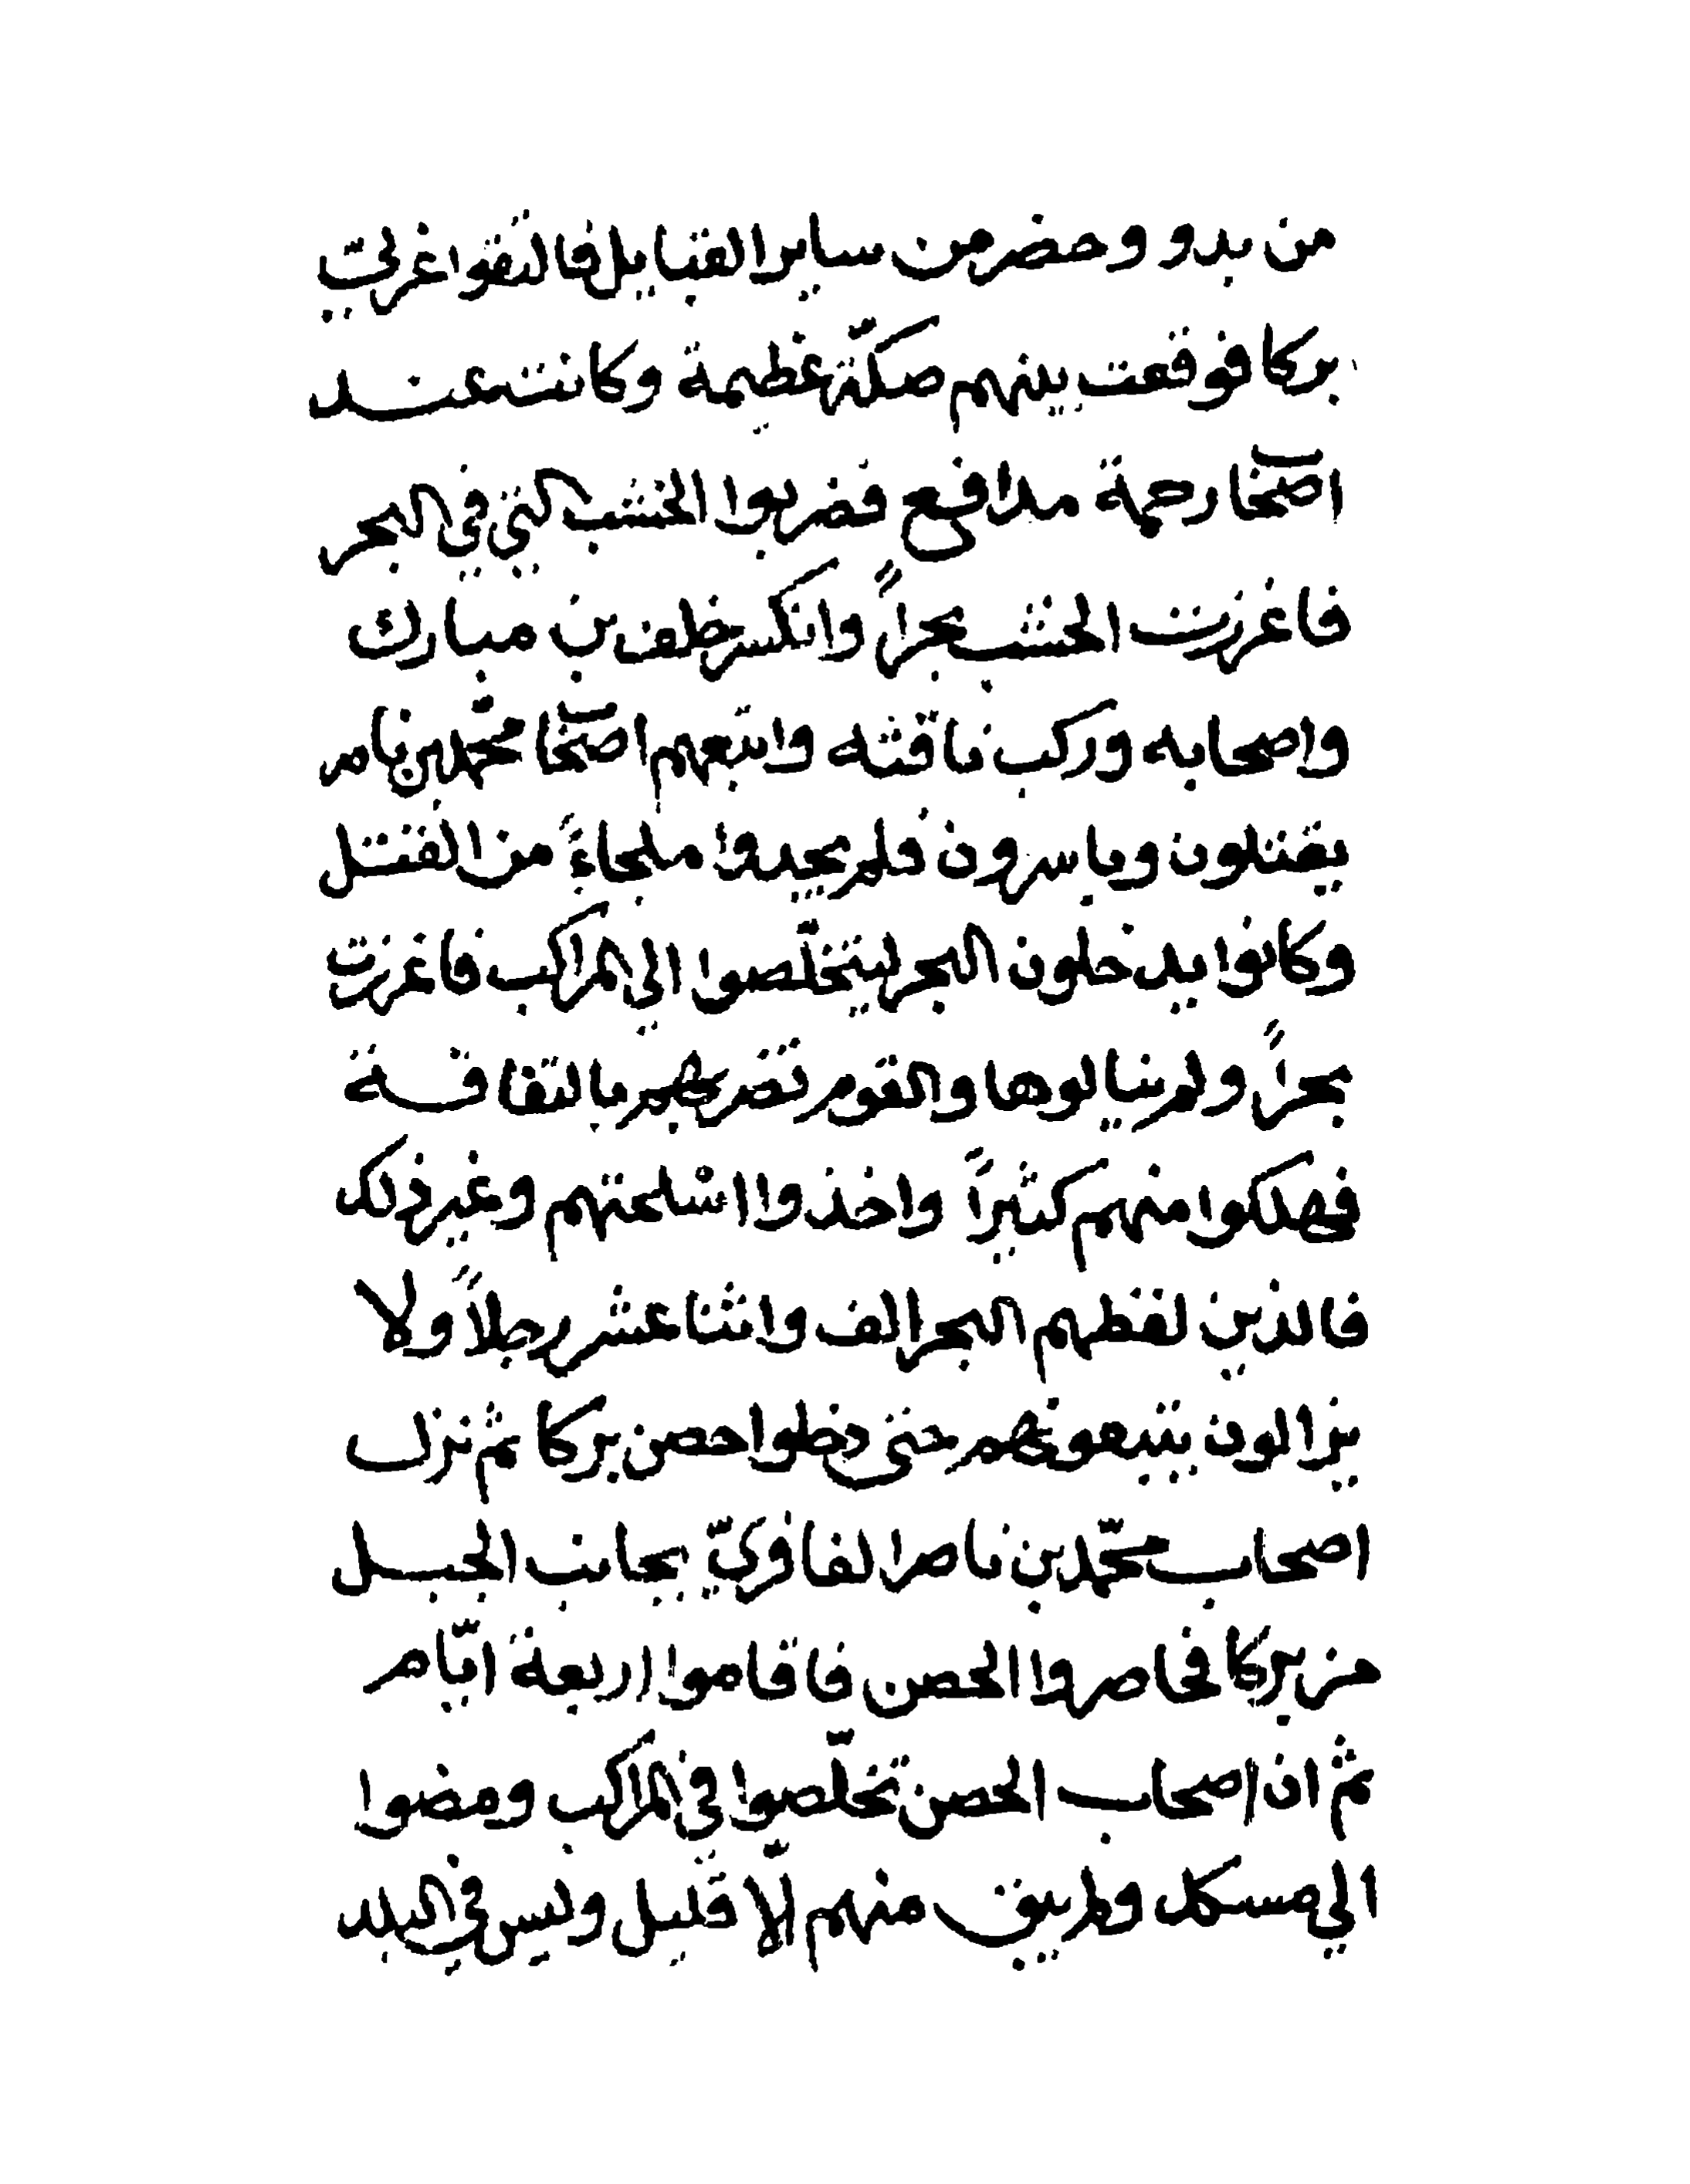 من بدو وحضر من ساير القبايل فالتقوا غربي
بركا فوقعت بينهم صكّة عظيمة وكانت عند
اصحاب رحمة مدافع فضربوا الخشب التي في البحر
فاغزرت الخشب بحراً وانكسر خلف بن مبارك
واصحابه وركب ناقته واتبعهم اصحاب محمّد بن ناصر
يقتلون وياسرون فلم يجدوا ملجاءً من القتل
وكانوا يدخلون البحر ليتخلّصوا الي المراكب فاغزرت
بحراً ولم ينالوها والقوم تضربهم بالتفاقة
فهلكوا منهم كثيراً واخذوا اسلحتهم وغير ذلك
فالذين لفظهم البحر الف واثنا عشر رجلاً ولا
يزالون يتبعونهم حتى دخلوا حصن بركا ثم نزل
اصحاب محمّد بن ناصر الغافريّ بجانب الجبل
من بركا فحاصروا الحصن فاقاموا اربعة ايّام
ثم ان اصحاب الحصن تخلّصوا في المراكب ومضوا
الي مسكد ولم يبق منهم الّا قليل وليس في البلد